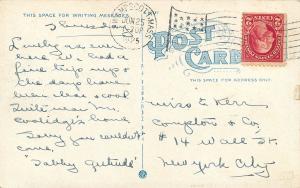 THIS SPACE FOR WRITING MESSAGES
POST CARD
THIS SPACE FOR ADDRESS ONLY
Thursday
Lovely as ever
here we had a
fine trip up &
the day have
been clear & cool
Quite near Mr.
Coolidge's home
Sorry you couldn't
come.
"Tabby Gertrude"
Miss E Kerr
Compton & Co
# 14 Wall St.
New York City